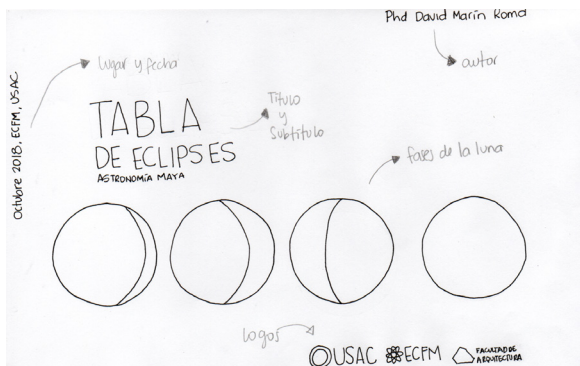 Phd David Marín Roma
autor
lugar y fecha
Octubre 2018, ECFM, USAC
TABLA
DE ECLIPSES
ASTRONOMÍA MAYA
Título
y
Subtítulo
fases de la luna
logos
USAC
ECFM
FACULTAD DE
ARQUITECTURA